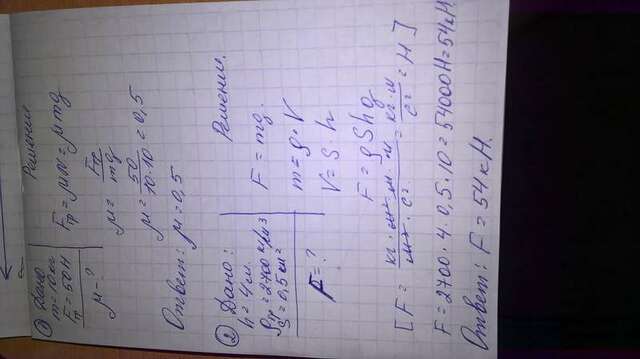 ① Дано
m = 10кг
Fтр = 50Н
μ - ?
Решение
Fтр = μN = μmg
μ = Fтр/mg
μ = 50/10·10 = 0,5
Ответ: μ = 0,5
② Дано:
h = 4м
ρгр = 2700 кг/м3
S = 0,5 м2
F = ?
Решение.
F = mg.
m = ρ·V
V = S·h
F = ρShg
[F = кг·м2·м·м/м3·с2 = кг·м/с2 = Н]
F = 2700·4·0,5·10 = 54000Н = 54кН.
Ответ: F = 54кН.